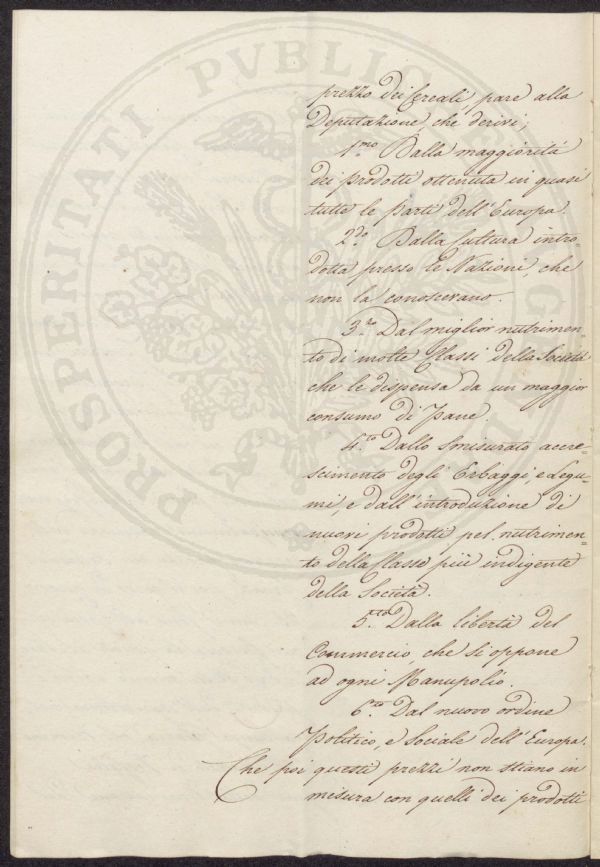 prezzo dei Cereali, pare alla
Deputazione, che derivi;
1.mo Dalla maggiorità
dei prodotti ottenuta in quasi
tutte le parti dell'Europa.
2.do Dalla Cultura intro=
dotta presso le Nazioni, che
non la conoscevano.
3.zo Dal miglior nutrimen=
to di molte Classi della Società
che le dispensa da un maggior
consumo di Pane.
4.to Dallo smisurato accre=
scimento degli Erbaggi, e Legu=
mi, e dall'introduzione di
nuovi prodotti pel nutrimen=
to della Classe più indigente
della Società.
5.to Dalla libertà del
Commercio, che si oppone
ad ogni Manupolio.
6.to Dal nuovo ordine
Politico, e Sociale dell'Europa.
Che poi questi prezzi non stiano in
misura con quelli dei prodotti
PROSPERITATI PVBLIC